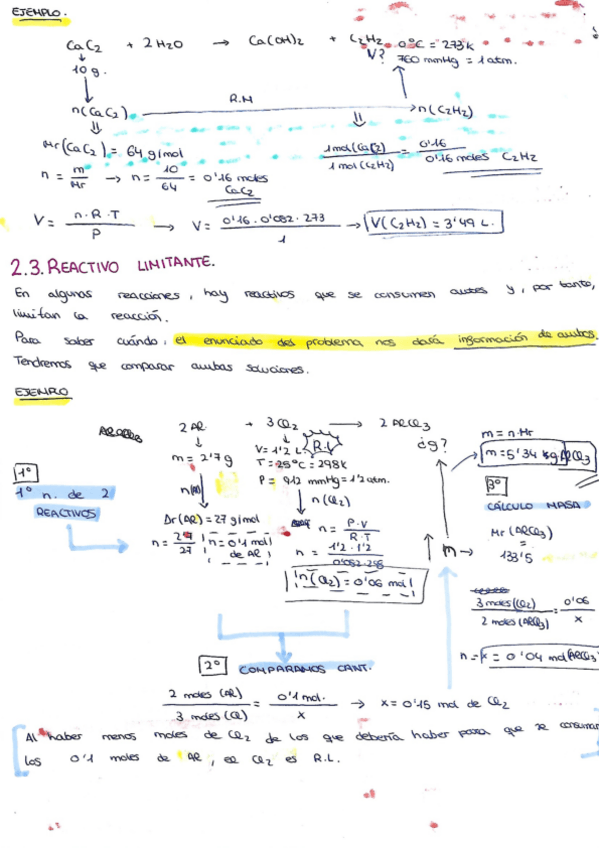 EJEMPLO.
CaC2 + 2H2O → Ca(OH)2 + C2H2
0ºC = 273K
V? 760 mmHg = 1 atm.
10g.
R.M
n(CaC2) → n(C2H2)
Mr(CaC2) = 64 g/mol
1 mol(CaC2) / 1 mol(C2H2) = 0'16 / 0'16 moles C2H2
n = m/Mr → n = 10/64 = 0'16 moles CaC2
V = n·R·T / P → V = 0'16·0'082·273 / 1 → V(C2H2) = 3'49 L.
2.3. REACTIVO LIMITANTE.
En algunas reacciones, hay reactivos que se consumen antes y, por tanto,
limitan la reacción.
Para saber cuándo, el enunciado del problema nos dará información de ambos.
Tendremos que comparar ambas soluciones.
EJEMPLO
2 Al + 3Cl2 → 2 AlCl3
m = 2'7g
V = 1'2 L.
R.L
T = 25ºC = 298K
P = 912 mmHg = 1'2 atm.
¿g?
m = n·Mr
m = 5'34 kg AlCl3
1º
1º n. de 2
REACTIVOS
n(Al)
n(Cl2)
Ar(Al) = 27 g/mol
n = 2'7/27
n = 0'1 mol de Al
n = P·V / R·T
n = 1'2·1'2 / 0'082·298
n(Cl2) = 0'06 mol
3º
CÁLCULO MASA
m →
Mr(AlCl3) = 133'5
3 moles(Cl2) / 2 moles(AlCl3) = 0'06 / x
n = x = 0'04 mol(AlCl3)
2º COMPARAMOS CANT.
2 moles (Al) / 3 moles (Cl) = 0'1 mol. / x → x = 0'15 mol de Cl2
Al haber menos moles de Cl2 de los que debería haber para que se consuman
los 0'1 moles de Al, el Cl2 es R.L.